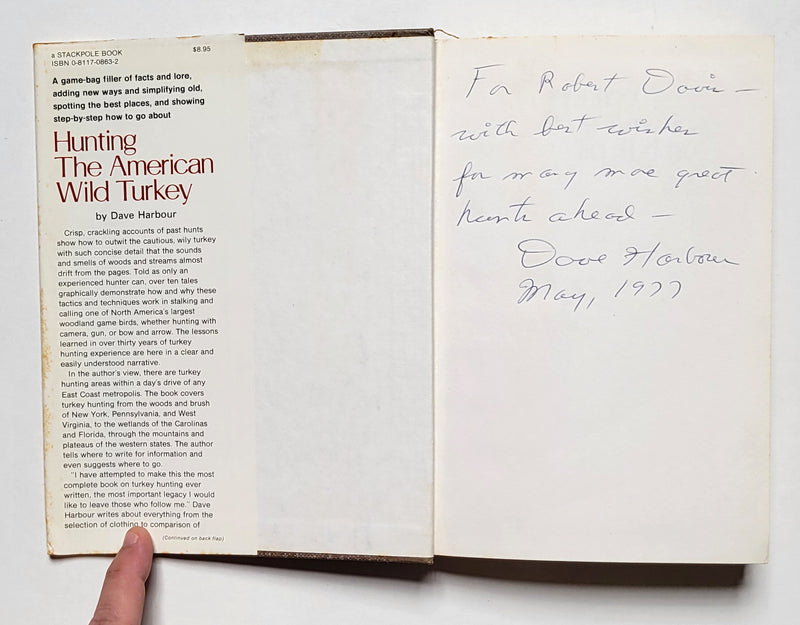 a STACKPOLE BOOK $8.95
ISBN 0-8117-0863-2
A game-bag filler of facts and lore,
adding new ways and simplifying old,
spotting the best places, and showing
step-by-step how to go about
Hunting
The American
Wild Turkey
by Dave Harbour
Crisp, crackling accounts of past hunts
show how to outwit the cautious, wily turkey
with such concise detail that the sounds
and smells of woods and streams almost
drift from the pages. Told as only an
experienced hunter can, over ten tales
graphically demonstrate how and why these
tactics and techniques work in stalking and
calling one of North America's largest
woodland game birds, whether hunting with
camera, gun, or bow and arrow. The lessons
learned in over thirty years of turkey
hunting experience are here in a clear and
easily understood narrative.
In the author's view, there are turkey
hunting areas within a day's drive of any
East Coast metropolis. The book covers
turkey hunting from the woods and brush
of New York, Pennsylvania, and West
Virginia, to the wetlands of the Carolinas
and Florida, through the mountains and
plateaus of the western states. The author
tells where to write for information and
even suggests where to go.
"I have attempted to make this the most
complete book on turkey hunting ever
written, the most important legacy I would
like to leave those who follow me." Dave
Harbour writes about everything from the
selection of clothing to comparison of
(Continued on back flap)
For Robert Davis —
with best wishes
for many more great
hunts ahead —
Dave Harbour
May, 1977